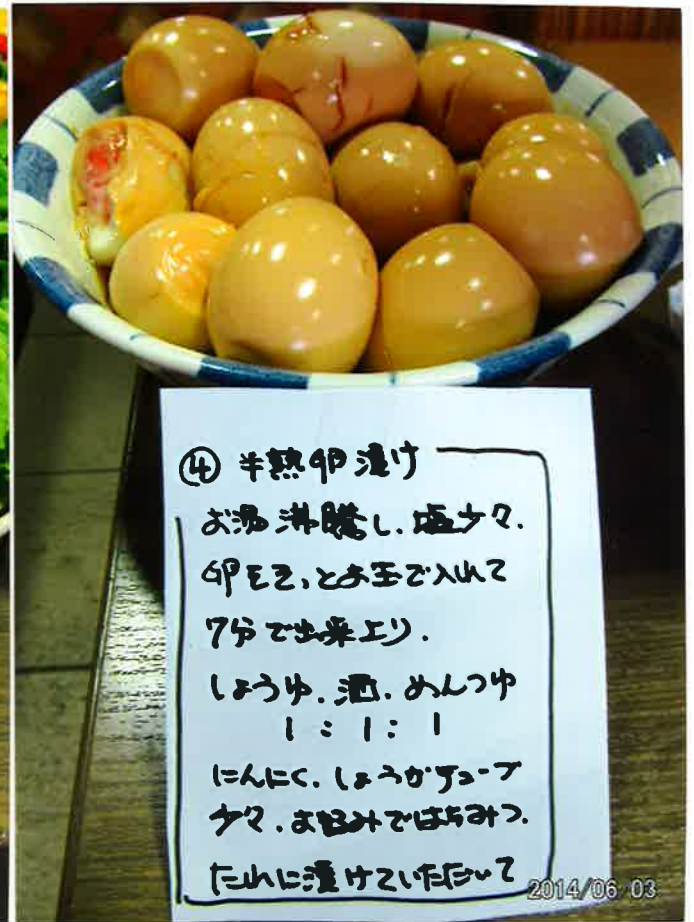 ④ 半熟卵漬け
お湯沸騰し、塩少々、
卵をそっとお玉で入れて
7分で出来上り。
しょうゆ、酒、めんつゆ
1 : 1 : 1
にんにく、しょうがチューブ
少々、お好みではちみつ。
たれに漬けていただいて
2014/06/03